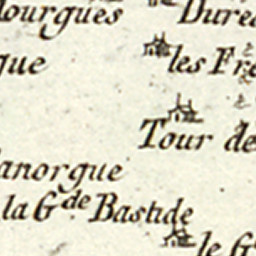 lourgues Dure
que les Fre
Tour de
anorgue
la G.de Bastide
le G